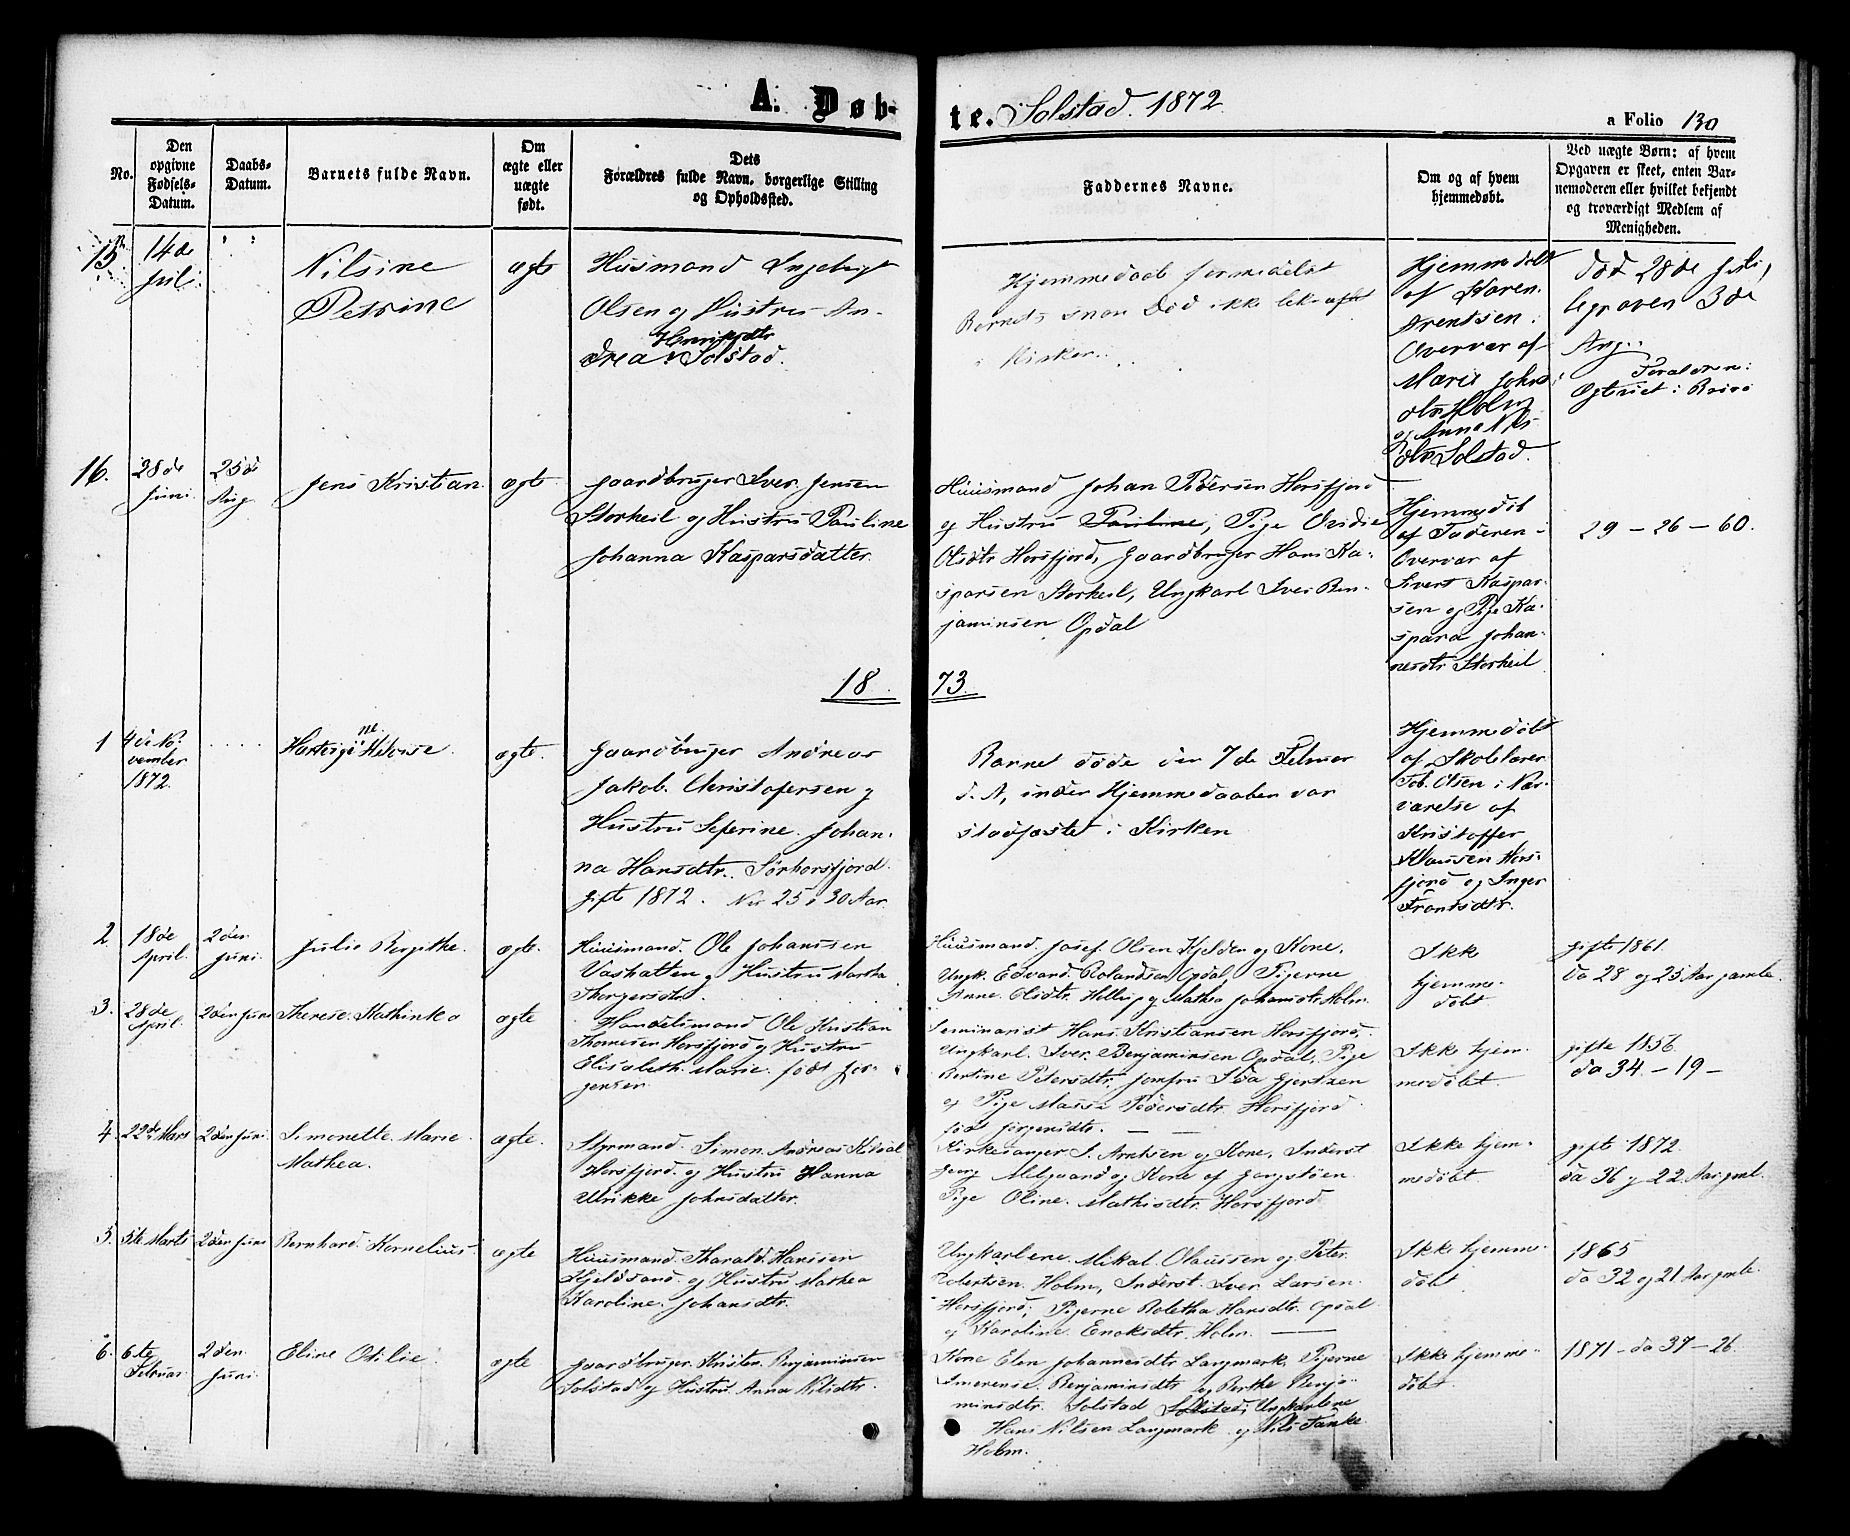 A. Døb-
te. Solstad. 1872
a Folio 130
No.
Den opgivne Fødsels-Datum.
Daabs-Datum.
Barnets fulde Navn.
Om ægte eller uægte født.
Dets Forældres fulde Navn, borgerlige Stilling og Opholdssted.
Faddernes Navne.
Om og af hvem hjemmedøbt.
Ved uægte Børn: af hvem Opgaven er skeet, enten Barnemoderen eller hvilket bekjendt og troværdigt Medlem af Menigheden.
15
14de
Juli
Nilsine
Petrine
ægte
Husmand Ingebrigt
Olsen og Hustru An-
Henriksdtr
drea Solstad.
Hjemmedaab formedelst
Barnets snare Død ikke bekræftet
i Kirken.
Hjemmedøbt
af Karen
Arentsen i
Overvær af
Marie Johns
dtr Holm
og Anna Nils
dtr Solstad.
død 28de Juli,
begraven 3de
Aug.
Forældrene
Ægteviet i Brinø
16.
28de
Juni.
25de
Aug
Jens Kristian.
ægte
Gaardbruger Iver Jensen
Storheil og Hustru Pauline
Johanna Kasparsdatter.
Huusmand Johan Pedersen Horsfjord
og Hustru Pauline, Pige Ovidie
Olsdtr Horsfjord, Gaardbruger Hans Ka-
sparsen Storheil, Ungkarl Iver Ben-
jaminsen Opdal
Hjemmedøb
af Faderen i
Overvær af
Sivert Kaspar-
sen og Pige Ka-
spara Johan-
nesdtr Storheil
29 - 26 - 60.
18
73.
1
4de No-
vember
1872.
Hartvigine Helense.
ægte.
Gaardbruger Andreas
Jakob Christofersen og
Hustru Seferine Johan-
na Hansdtr. Sørhorsfjord.
gift 1872. Nu 25 i 30 Aar.
Barnet døde den 7de Februar
d. A, inden Hjemmedaaben var
stadfæstet i Kirken
Hjemmedøbt
af Skolelærer
Tob. Olsen i Nær-
værelse af
Kristoffer
Klausen Hors-
fjord og Inger
Frantsdtr.
2
18de
April.
2den
Juni.
Julie Bergithe.
ægte.
Huusmand. Ole Johanssen
Vashatten og Hustru Martha
Thorgersdtr.
Huusmand. Josef Olsen Kjelden og Kone,
Ungk. Edvard Rolandsen Opdal, Pigerne
Anne Olsdtr. Hellrup og Mathea Johansdtr Holm.
Ikke
hjemme-
døbt
gifte 1861.
da 28 og 25 Aar gamle
3.
28de
April.
2den Juni
Therese Kathinka
ægte
Handelsmand Ole Kristian
Thomesen Horsfjord og Hustru
Elisabeth Marie født Jør-
gensen
Seminarist Hans Kristiansen Horsfjord,
Ungkarl. Iver Benjaminsen Opdal, Pige
Bertine Petersdtr, Jomfru Ida Gjertzen
og Pige Massi Pedersdtr. Horsfjord
født Jørgensdtr.
Ikke hjem-
medøbt.
gifte 1856
da 34. - 19 -
4
22de Mars
2den Juni.
Simonette Marie
Mathea.
ægte.
Styrmand. Simon Andreas Kildal
Horsfjord og Hustru Hanna
Ulrikke Johnsdatter.
Kirkesanger S. Arntsen og Kone, Inderst
Georg Milgaard og Kone af Jengstøen
Pige Oline Mathisdtr. Horsfjord
Ikke hjem-
medøbt
gift 1872.
da 36 og 22 Aar gml.
5.
5te Marts
2den Juni
Bernhard. Kornelius.
ægte
Huusmand. Tharald. Hanssen
Kjeldsand. og Hustru Mathea
Karoline. Johansdtr.
Ungkarlene. Mikal. Olaussen og Peter.
Robertsen. Holm, Inderst. Iver Larsen.
Horsfjord; Pigerne Roletha Hansdtr. Opdal
og Karoline. Enoksdtr. Holm.
Ikke hjemme-
døbt.
1865
da 32 og 21 Aar gamle.
6.
6te
Februar
2den.
Juni.
Eline Otilie.
ægte
Gaardbruger. Kristen. Benjaminsen
Solstad og Hustru. Anna Nilsdtr.
Kone Elen Johannesdtr Langmark, Pigerne
Imerense. Benjaminsdtr og Berthe Benja-
minsdtr. Solstad Solstad; Ungkarlene
Hans Nilsen Langmark og Nils Tanke
Holm.
Ikke hjemme-
døbt.
1871 - da 37 - 26.